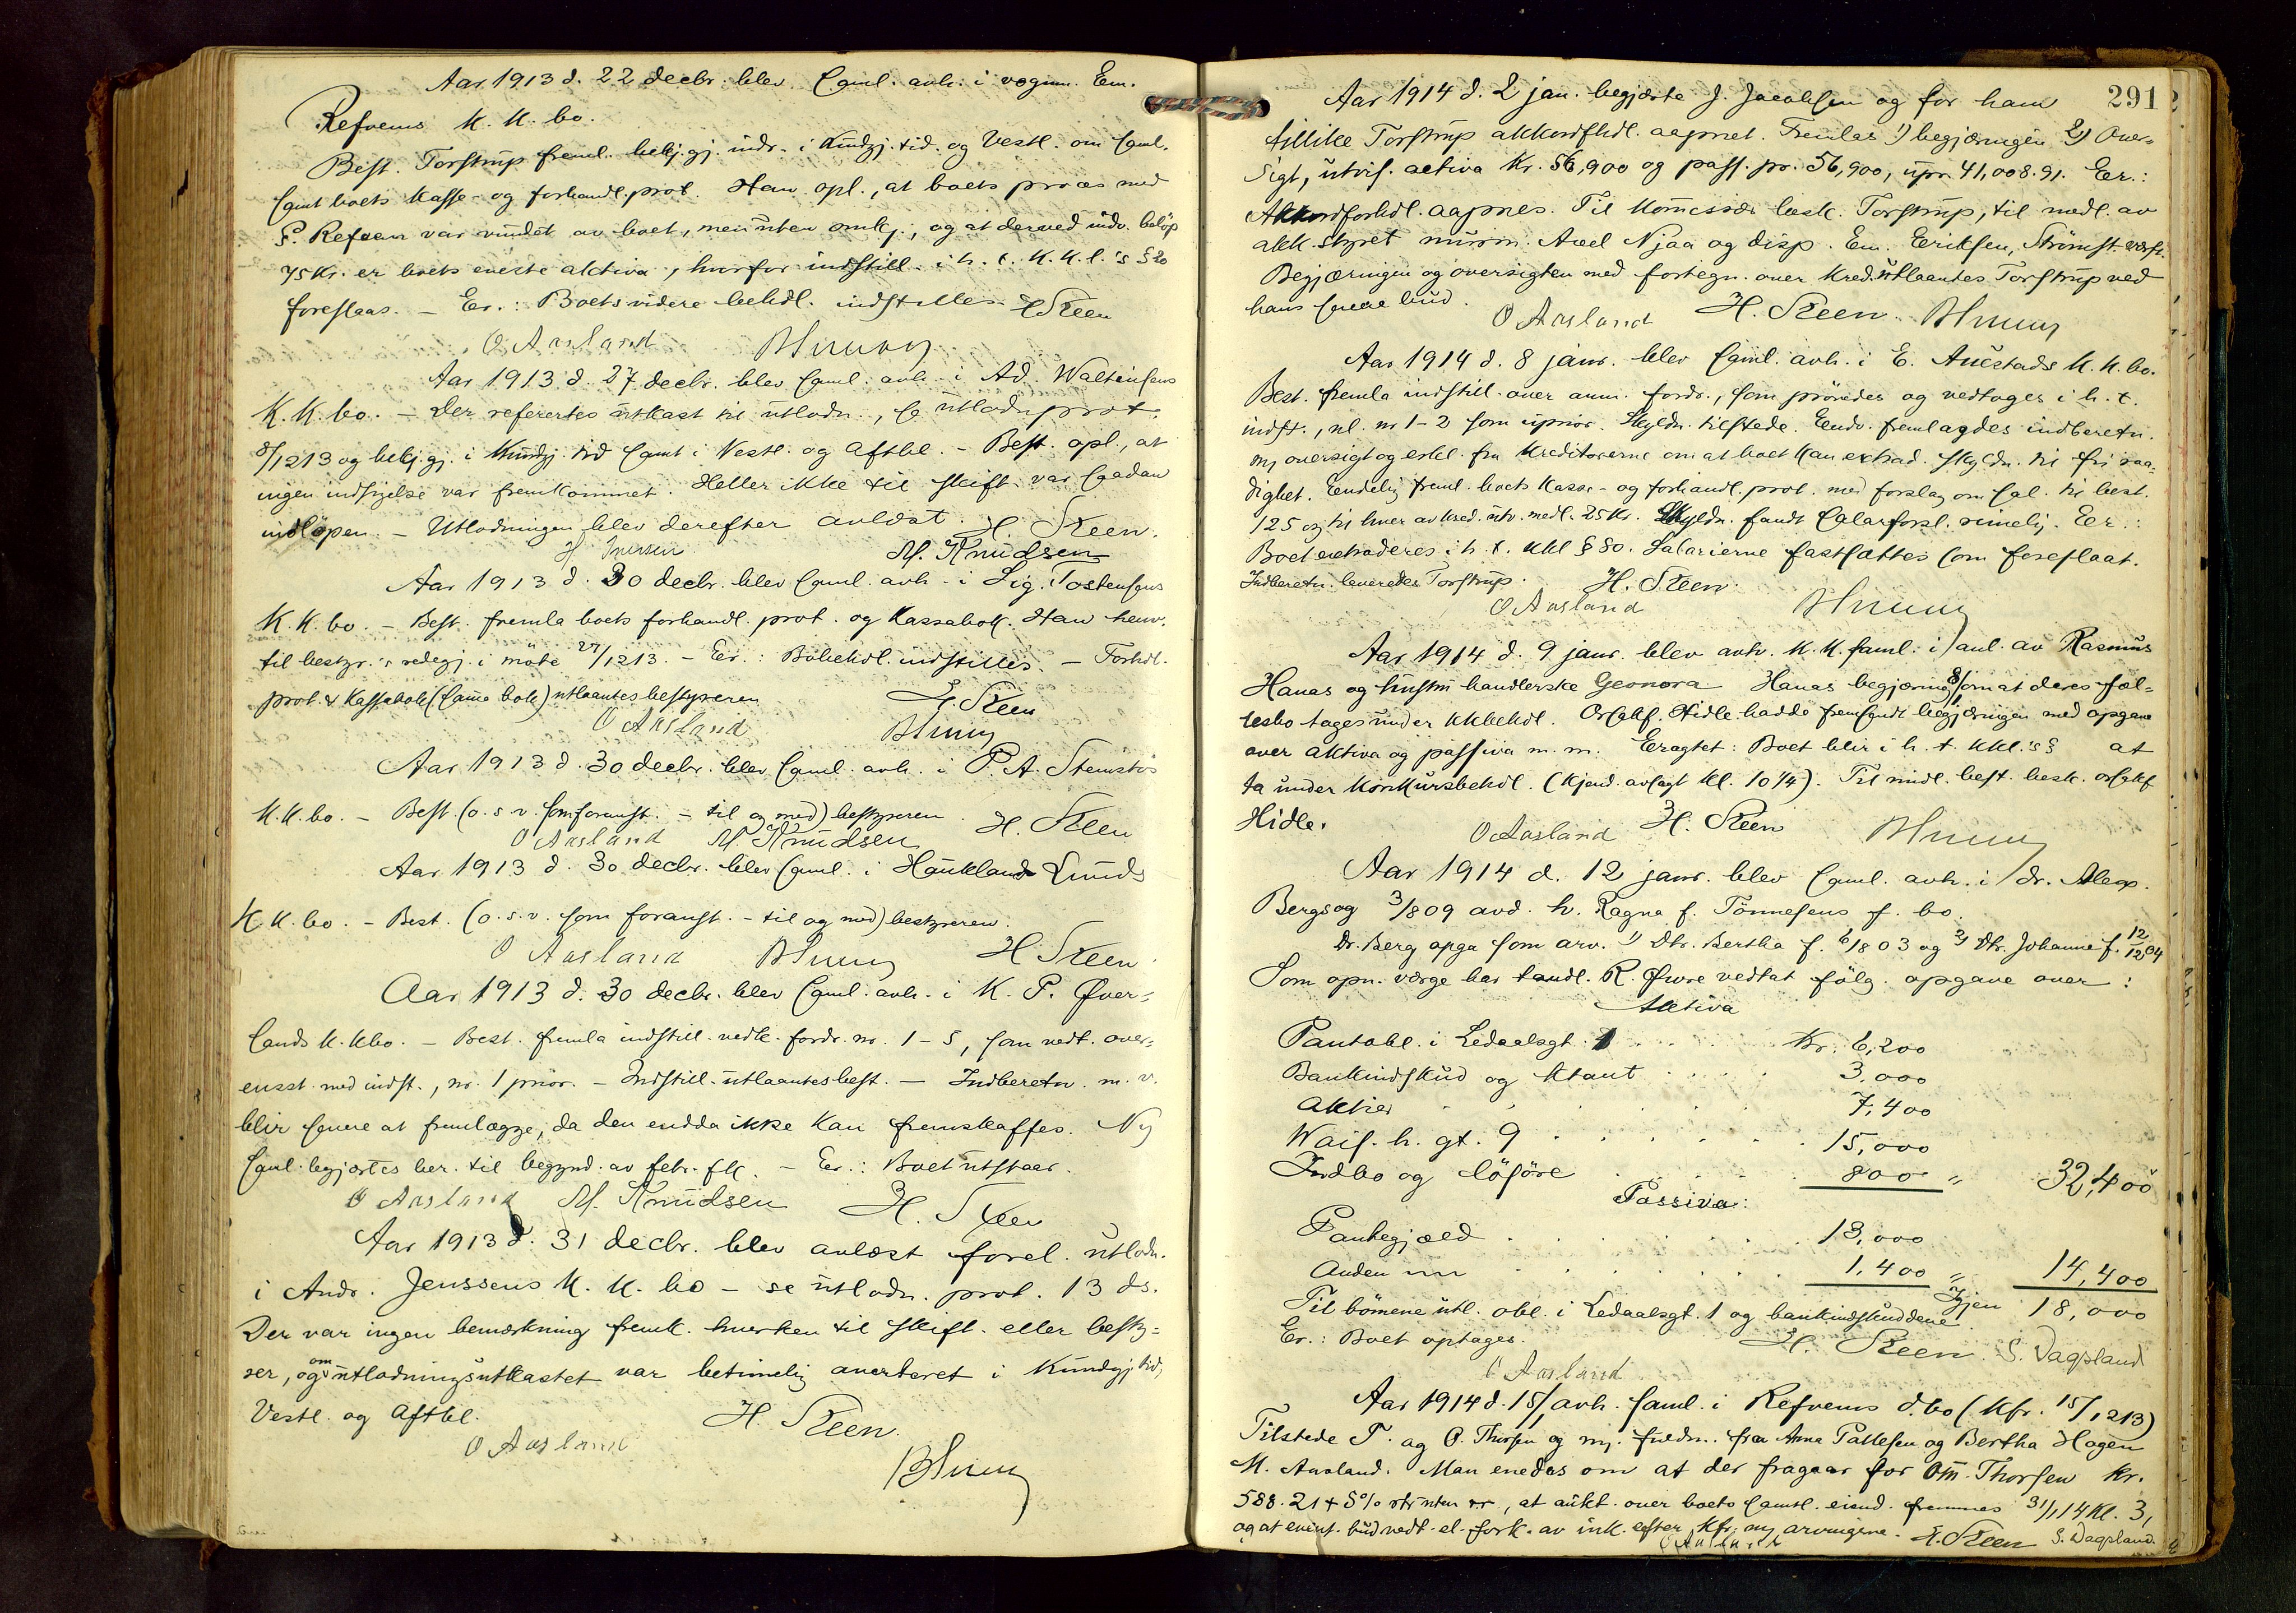 Aar 1913 d. 22 decbr. blev saml. avh. i vognm. Em.
Refvems K. K. bo.
Best. Torstrup freml. bekj.gj. indr. i Kundgj. tid. og Vestl. om saml.
samt boets kasse- og forhandl.prot. Han opl., at boets proces med
P. Refvem var vundet av boet, men uten omk., og at derved indv. beløp
75 kr. er boets eneste aktiva, hvorfor indstill. i h. t. K. K. l.'s § 20
foreslaas. – Er.: Boets videre behdl. indstilles. H Steen
O Aasland
Aar 1913 d. 27 decbr. blev saml. avh. i Ad. Waltinsens
K. K. bo. – Der refereres utkast til utlodn., se utlodn.prot.
8/1213 og bekj.gj. i Kundgj. tid samt i Vestl. og Aftbl. – Best. opl., at
ingen indsigelse var fremkommet. Heller ikke til skift. var saadan
indløpen. – Utlodningen blev derefter avlæst. H. Steen.
H Iversen M. Knudsen
Aar 1913 d. 30 decbr. blev saml. avh. i Sig. Tostensens
K. K. bo. – Best. fremla boets forhandl. prot. og kassabok. Han henv.
til bestyr.'s redegj. i møte 27/1213. – Er.: Bobehdl. indstilles. – Forhdl.
prot. & Kassabok (samme bok) utlaantes bestyreren H. Steen
O Aasland
Aar 1913 d. 30 decbr. blev saml. avh. i P. A. Stenstøs
K. K. bo. – Best. (o. s. v. som foranst. – til og med) bestyreren. H. Steen
O Aasland M. Knudsen
Aar 1913 d. 30 decbr. blev saml. i Haukland Lunds
K. K. bo. – Best. (o. s. v. som foranst. – til og med) bestyreren.
O Aasland H Steen
Aar 1913 d. 30 decbr. blev saml. avh. i K. P. Øver=
lands K. Kbo. – Best. fremla indstill. vedk. fordr. nr. 1–5, som vedt. over=
ensst. med indst., nr. 1 prior. – Indstill. utlaantes best. – Indberetn. m. v.
blir senere at fremlægge, da den endda ikke kan fremskaffes. Ny
saml. begjærtes ber. til begynd. av febr. fk. – Er.: Boet utstaar.
O Aasland M. Knudsen H. Steen
Aar 1913 d. 31 decbr. blev avlæst forel. utlodn.
i Andr. Jenssens K. K. bo – se utlodn. prot. 13 ds.
Der var ingen bemærkning fremk. hverken til skift. eller besty=
rer, og om utlodningsutkastet var betimelig averteret i Kundgj. tid,
Vestl. og Aftbl. H. Steen.
O Aasland
291
Aar 1914 d. 2 jan. begjærte J. Jacobsen og for ham
tillike Torstrup akkordfhdl. aapnet. Fremlas 1) begjæringen 2) Over=
sigt, utvis. activa Kr. 56,900 og pass. pr. 56,900, upr. 41,008.91. Er.:
Akkordforhdl. aapnes. Til Komissær besk. Torstrup, til medl. av
akk.styret murm. Axel Njaa og disp. Em. Eriksen, Strømst. værft.
Begjæringen og oversigten med fortegn. over kred. utlaantes Torstrup ved
hans senere bud. O Aasland H. Steen.
Aar 1914 d. 8 janr. blev saml. avh. i E. Auestads K. K. bo.
Best. fremla indstill. over anm. fordr., som prøvedes og vedtoges i h. t.
indst., nl. nr 1–2 som uprior. Skyldn. tilstede. Endv. fremlagdes indberetn.
m/ oversigt og erkl. fra kreditorerne om at boet kan extrad. skyldn. til fri raa=
dighet. Endelig freml. boets kasse- og forhandl. prot. med forslag om sal. til best.
125 og til hver av kred. utv. medl. 25 kr. Skyldn. fandt salarforsl. rimelig. Er.:
Boet extraderes i h. t. kkl § 80. Salarierne fastsættes som foreslaat.
Indberetn. leveredes Torstrup. H. Steen.
O Aasland
Aar 1914 d. 9 janr. blev avh. K. K. saml. i anl. av Rasmus
Hanas og hustru handlerske Geonora Hanas begjæring 8/1 om at deres fæl=
lesbo tages under kkbehdl. Orsakf. Hidle hadde fremsendt begjæringen med opgave
over aktiva og passiva m. m. Eragtet: Boet blir i h. t. kkl.'s § at
ta under konkursbehdl. (kjend. avsagt kl. 10 1/4). Til midl. best. besk. orsakf
Hidle. O Aasland H. Steen
Aar 1914 d. 12 janr. blev saml. avh. i dr. Alex.
Bergs og 3/809 avd. h. Ragna f. Tønnesens f. bo.
Dr. Berg opga som arv. 1) Dtr. Bertha f. 6/803 og 2) Dtr. Johanne f. 12/1204
Som opn. værge har tandl. R. Øvre vedtat følg. opgave over:
Aktiva
Pantobl. i Ledaalsgt. 1 Kr. 6,200
Bankindskud og ktant 3,000
Aktier 7,400
Wais. h. gt. 9 15,000
Indbo og løsøre 800 " 32,400
Passiva:
Pantegjæld 13,000
Anden " 1,400 " 14,400
Igjen 18,000
Til børnene utl. obl. i Ledaalsgt. 1 og bankindskuddene
Er.: Boet optages. H. Steen. S. Dagsland
O Aasland
Aar 1914 d. 15/1 avh. saml. i Refvems d.bo (kfr. 15/1213)
Tilstede T. og O. Thorsen og m/ fuldm. fra Anna Pallesen og Bertha Hagen
M. Aasland. Man enedes om at der fragaar for Om. Thorsen kr.
588.21 + 5% uten rr., at aukt. over boets samtl. eiend. fremmes 31/1 14 kl. 3,
og at event. bud vedt. el. fork. av ink. efter kfr. m/ arvingene. H. Steen S. Dagsland.
O Aasland